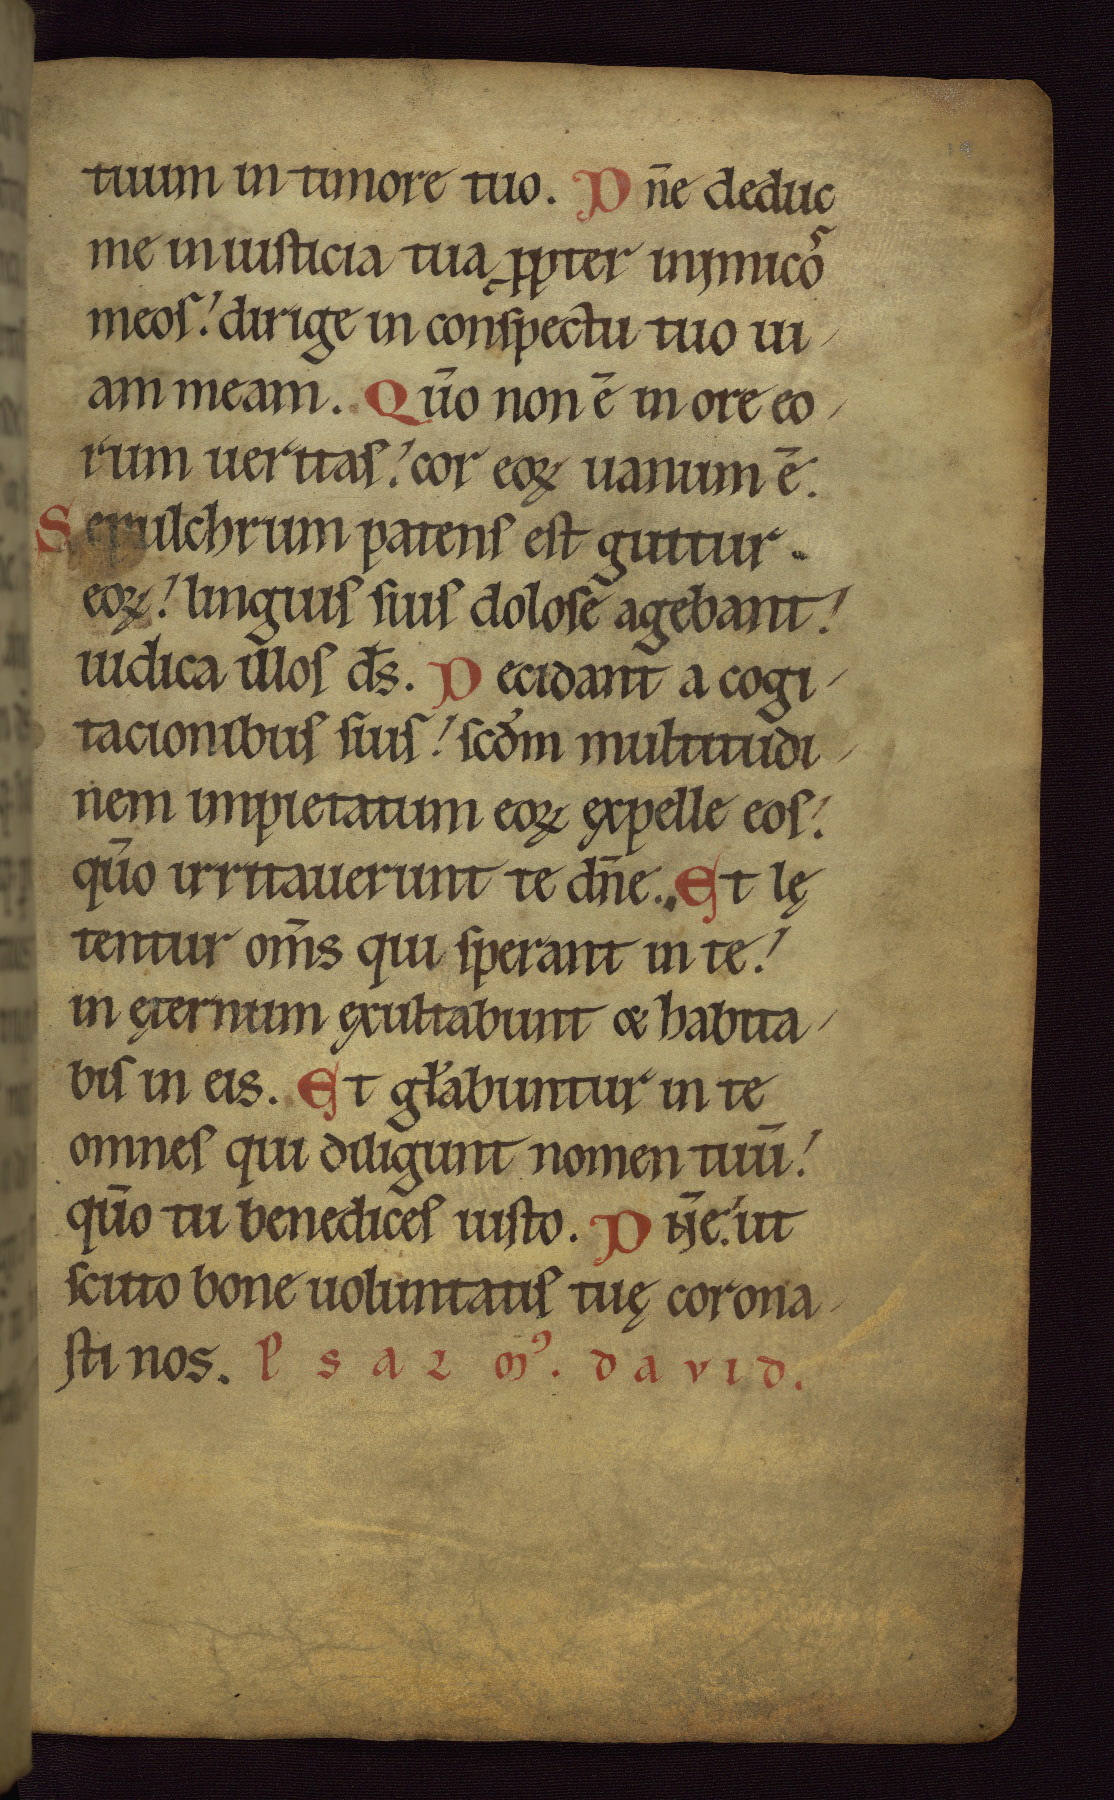 tuum in timore tuo. Dn̄e deduc
me in iusticia tua ꝓpter inimicos
meos! dirige in conspectu tuo ui
am meam. Qūo non ē in ore eo
rum ueritas! cor eoꝝ uanum ē.
Sepulchrum patens est guttur
eoꝝ! linguis suis dolose agebant!
iudica illos d̄s. Decidant a cogi
tacionibus suis! scd̓m multitudi
nem impietatum eoꝝ expelle eos!
qūo irritauerunt te dn̄e. Et lę
tentur om̄s qui sperant in te!
in ęternum ęxultabunt & habita
bis in eis. Et gl̄abuntur in te
omnes qui diligunt nomen tuū!
qūo tu benedices iusto. Dn̄e! ut
scuto bone uoluntatis tuę corona
sti nos. psalmꝰ. david.